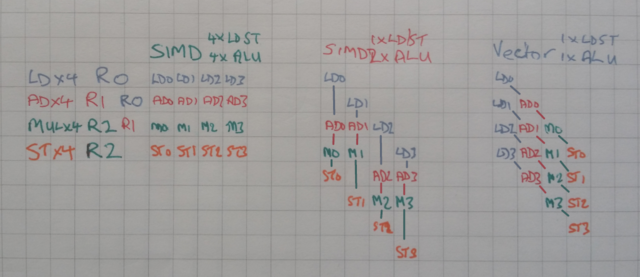 SIMD 4xLDST
4xALU
SIMD2 1xLDST
2xALU
Vector 1xLDST
1xALU
LDx4 R0
ADx4 R1 R0
MULx4 R2 R1
STx4 R2
LD0 LD1 LD2 LD3
AD0 AD1 AD2 AD3
M0 M1 M2 M3
ST0 ST1 ST2 ST3
LD0
LD1
AD0 AD1 LD2
M0 M1 LD3
ST0 AD2 AD3
ST1 M2 M3
ST2
ST3
LD0
LD1 AD0
LD2 AD1 M0
LD3 AD2 M1 ST0
AD3 M2 ST1
M3 ST2
ST3